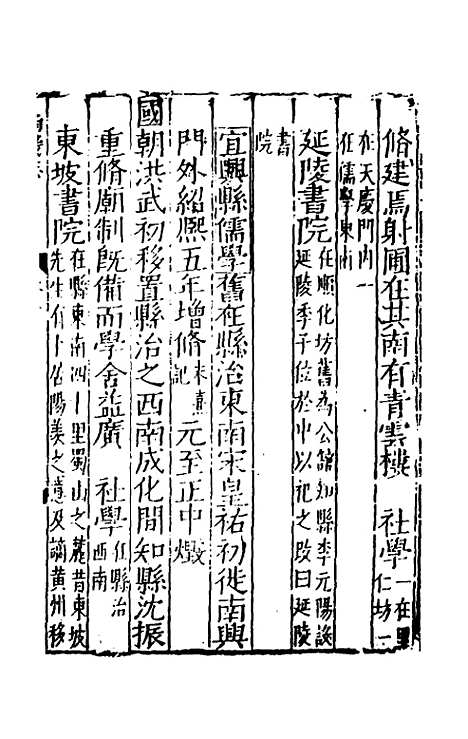 脩建焉射圃在其南有青雲樓　社學一在里仁坊一
在天慶門內一在儒學東南
延陵書院在順化坊舊為公舘知縣李元陽設延陵季子位於中以祀之改曰延陵
書院
宜興縣儒學舊在縣治東南宋皇祐初徙南興
門外紹熙五年增脩朱熹記　元至正中燬
國朝洪武初移置縣治之西南成化間知縣沈振
重脩廟制既備而學舍益廣　社學在縣治西南
東坡書院在縣東南四十里蜀山之麓昔東坡先生有卜佔陽羨之意及謫黄州移